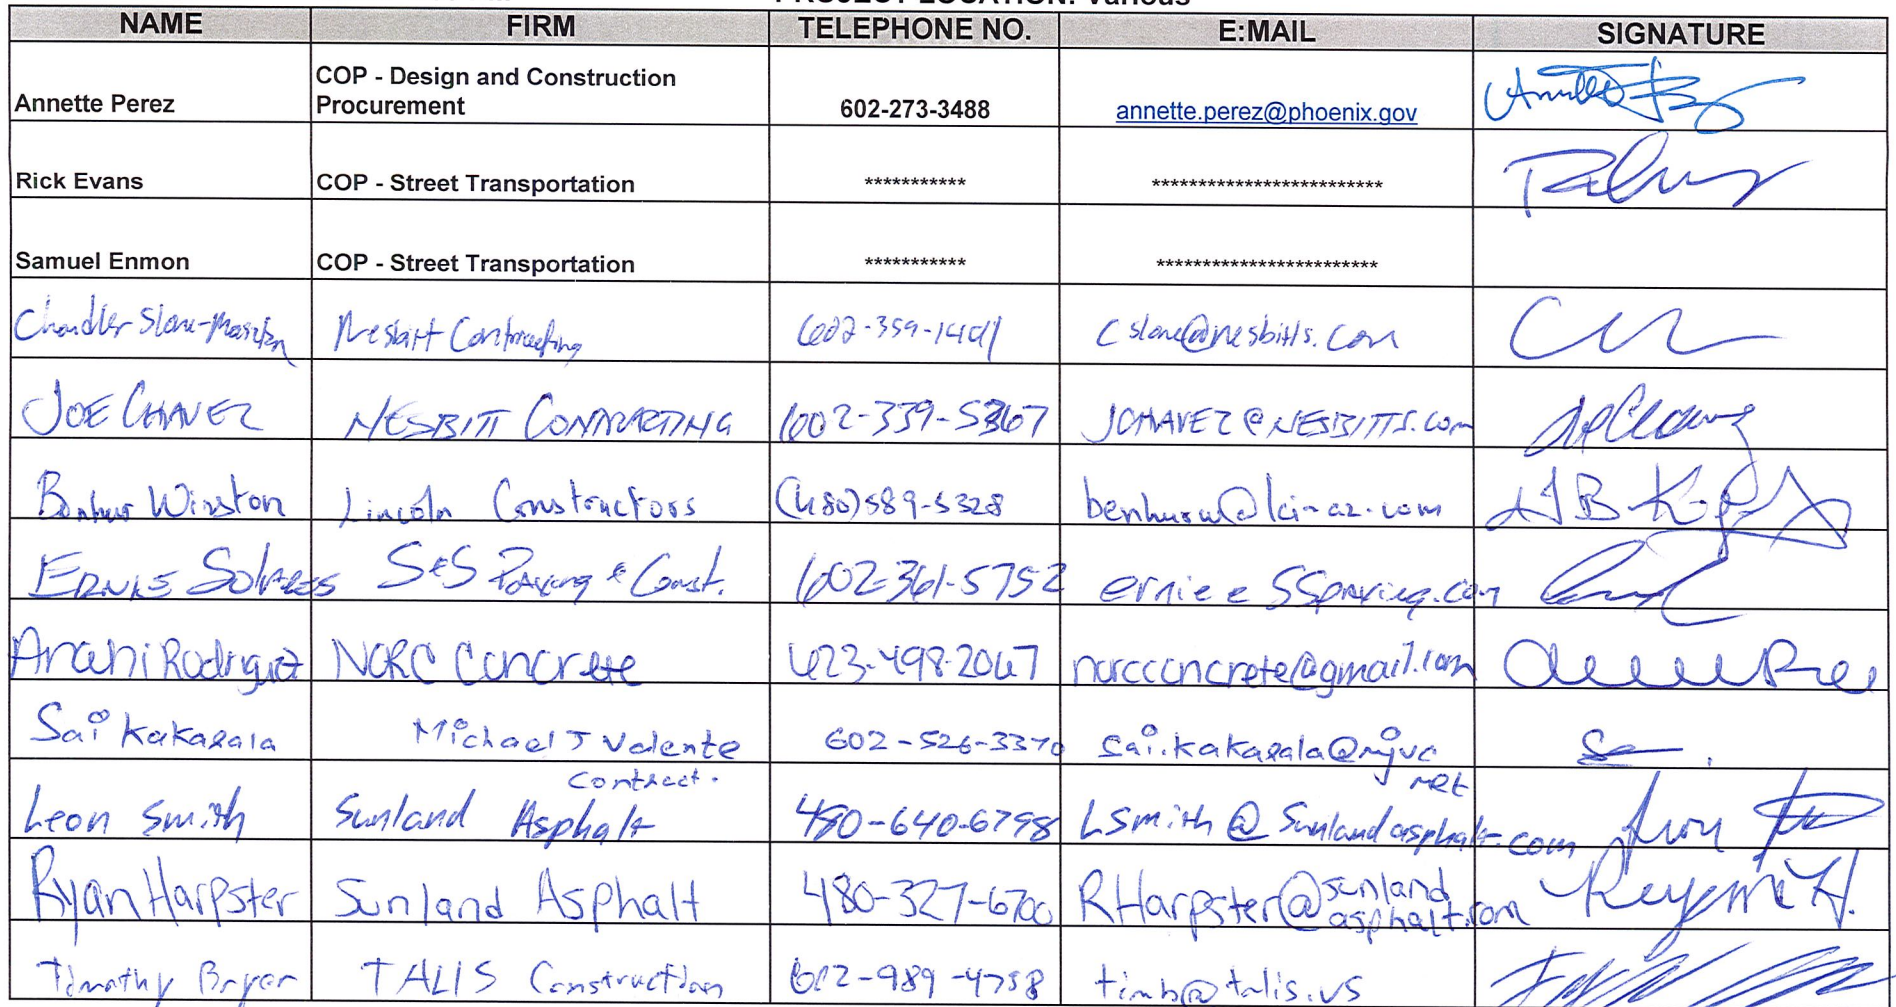 PROJECT LOCATION: Various
NAME FIRM TELEPHONE NO. E:MAIL SIGNATURE
COP - Design and Construction
Annette Perez Procurement 602-273-3488 annette.perez@phoenix.gov
Rick Evans COP - Street Transportation *********** *************************
Samuel Enmon COP - Street Transportation *********** ************************
Chandler Nesbitt Contracting cslone@nesbitts.com
JOE CHAVEZ NESBITT CONTRACTING 602-339-5367 JCHAVEZ@NESBITTS.com
Benhur Winston Lincoln Constructors (480)589-5328 benhurw@lci-az.com
ERNIE SOLARES S&S Paving & Const. 602-361-5752 ernie@SSpaving.com
Anahi Rodriguez NCRC Concrete 623-498-2067 ncrcconcrete@gmail.com
Sai Kakarala Michael J Valente 602-526-3370 sai.kakarala@mjvc
Contract. net
Leon Smith Sunland Asphalt 480-640-6798 LSmith@Sunlandasphalt.com
Ryan Harpster Sunland Asphalt 480-327-6700 RHarpster@sunland
asphalt.com
Timothy Bryer TALIS Construction 602-989-4758 timb@talis.us